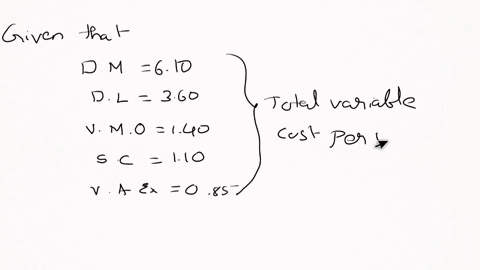 Given that
D M = 6.10
D.L = 3.60
V.M.O = 1.40
S.C = 1.10
V.A Ex = 0.85
Total variable
cost per